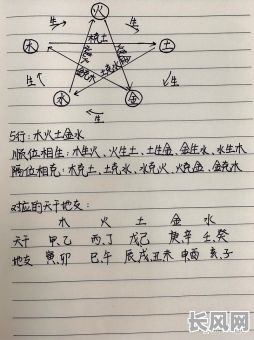 火
生 生
木 土
木克土
火克金
水克火
金克木 土克水
生 生
水 金
生
5行：木火土金水
顺位相生：木生火、火生土、土生金、金生水、水生木
隔位相克：木克土、土克水、水克火、火克金、金克木
对应的天干地支：
木 火 土 金 水
天干 甲、乙 丙、丁 戊己 庚、辛 壬、癸
地支 寅、卯 巳、午 辰戌丑未 申酉 亥、子
长风网